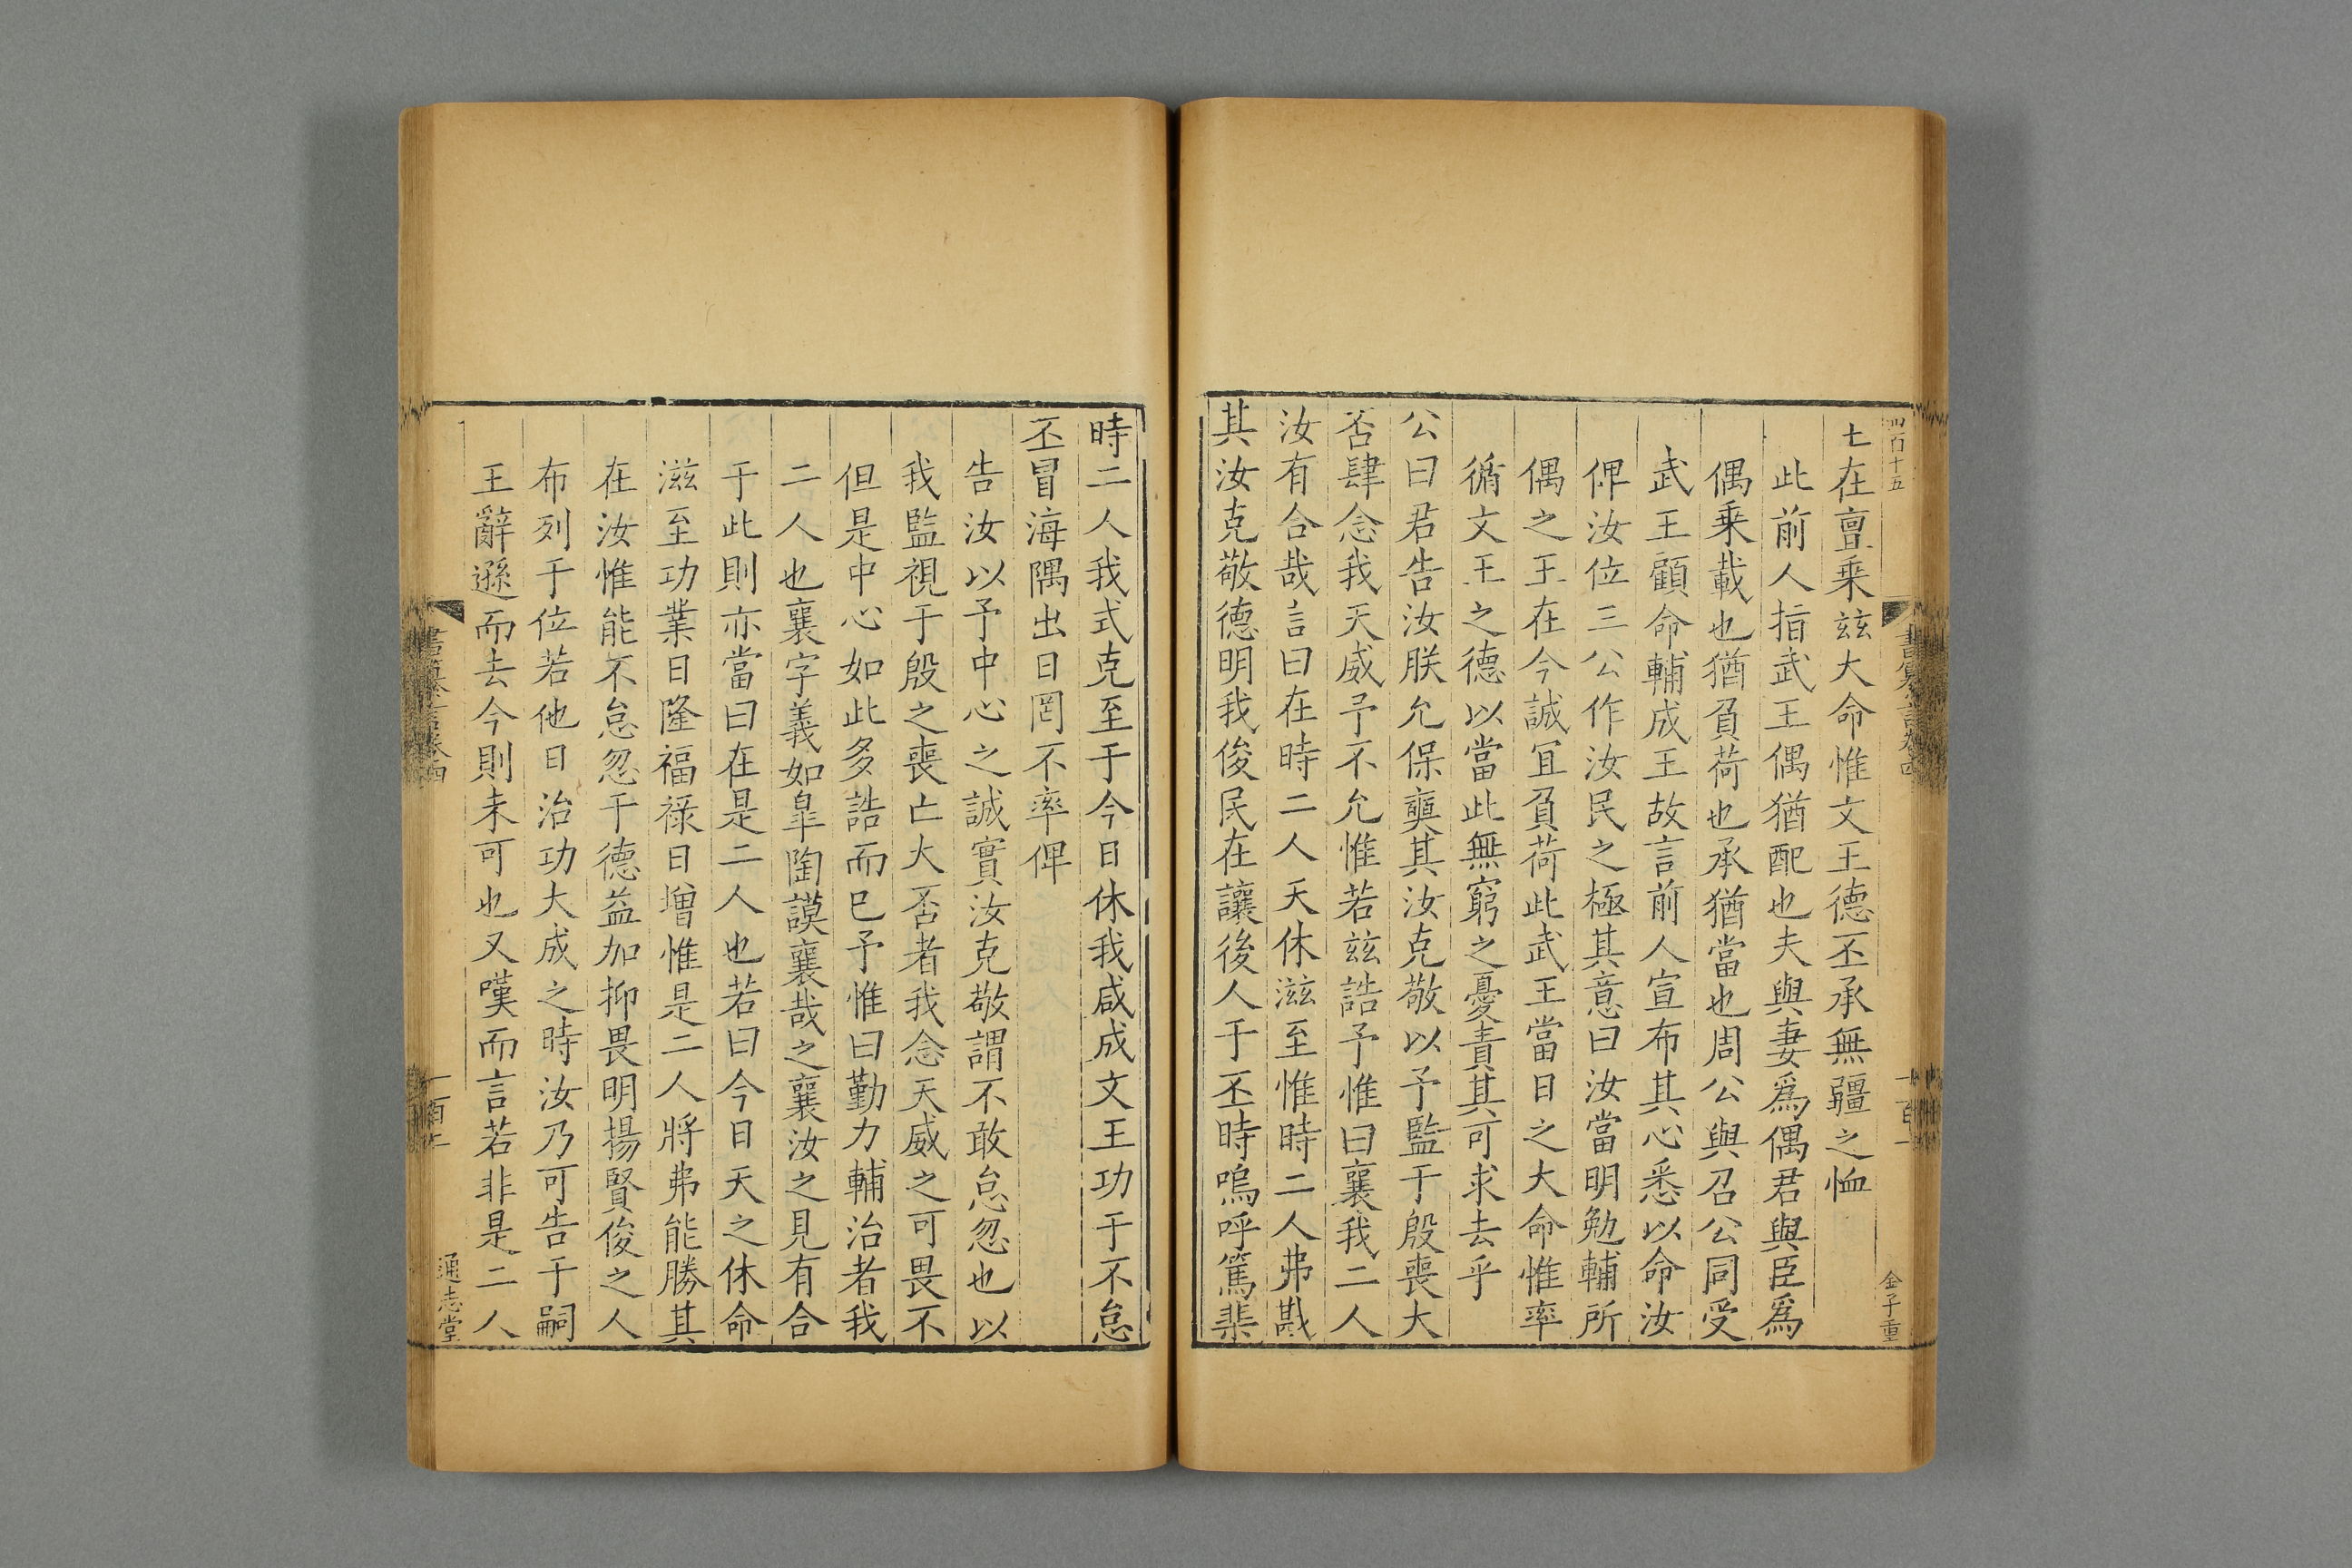 四百十五
王在亶乗兹大命惟文王德丕承無疆之恤
此前人指武王偶猶配也夫與妻爲偶君與臣爲
偶乗載也猶負荷也承猶當也周公與召公同受
武王顧命輔成王故言前人宣布其心悉以命汝
俾汝位三公作汝民之極其意曰汝當明勉輔所
偶之王在今誠宜負荷此武王當日之大命惟率
循文王之德以當此無窮之憂責其可求去乎
公曰君告汝朕允保奭其汝克敬以予監于殷喪大
否肆念我天威予不允惟若兹誥予惟曰襄我二人
汝有合哉言曰在時二人天休滋至惟時二人弗戡
其汝克敬德明我俊民在讓後人于丕時嗚呼篤棐
金子重
時二人我式克至于今日休我咸成文王功于不怠
丕冒海隅出日罔不率俾
告汝以予中心之誠實汝克敬謂不敢怠忽也以
我監視于殷之喪亡大否者我念天威之可畏不
但是中心如此多誥而已予惟曰勤力輔治者我
二人也襄字義如皐陶謨襄哉之襄汝之見有合
于此則亦當曰在是二人也若曰今日天之休命
滋至功業日隆福禄日增惟是二人將弗能勝其
在汝惟能不怠忽于德益加抑畏明揚賢俊之人
布列于位若他日治功大成之時汝乃可告于嗣
王辭遜而去今則未可也又嘆而言若非是二人
通志堂